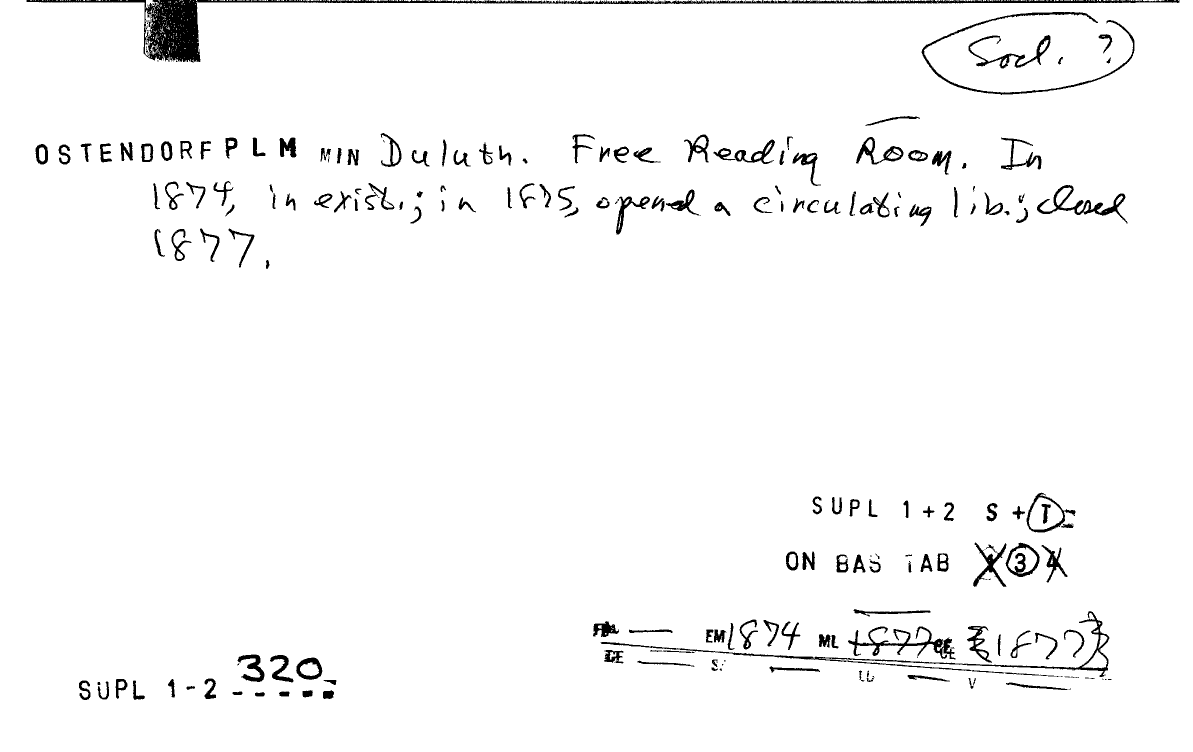 Socl. ?
OSTENDORF PLM MIN Duluth. Free Reading Room. In
1874, in exist.; in 1875, opened a circulating lib.; closed
1877.
SUPL 1+2 S + T
ON BAS TAB 3 4
EM 1874 ML 1877 {1877}
SUPL 1-2 320
V